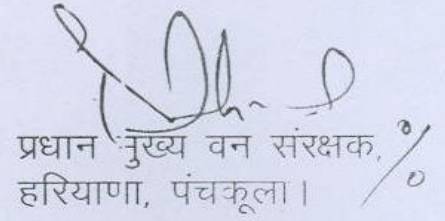 प्रधान मुख्य वन संरक्षक,
हरियाणा, पंचकूला।